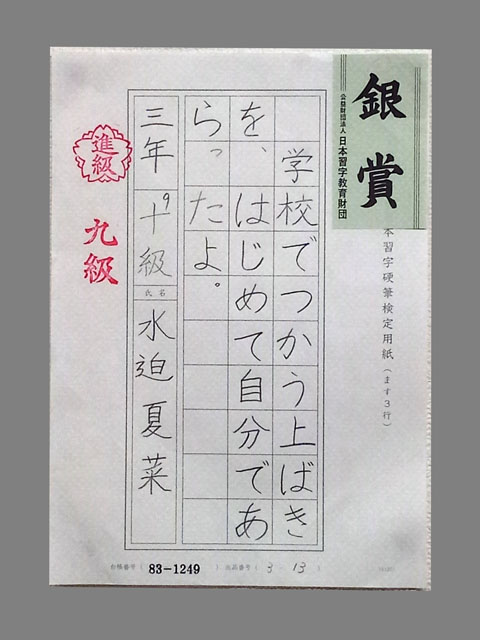 銀賞
公益財団法人 日本習字教育財団
本習字硬筆検定用紙（ます３行）
学校でつかう上ばき
を、はじめて自分であ
らったよ。
三年 十級
9
氏名
水迫夏菜
進級
九級
台帳番号（ 83-1249 ） 出品番号（ 3-13 ）